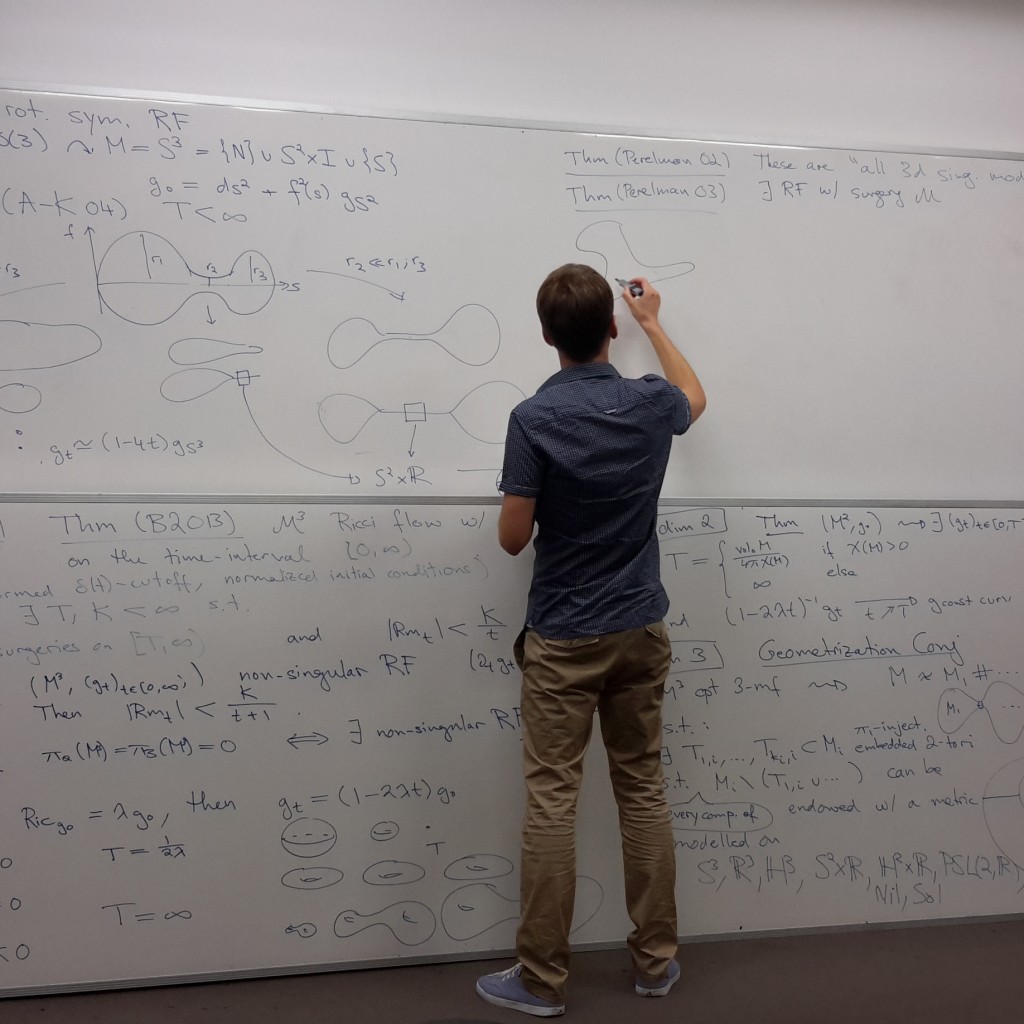 rot. sym. RF
S(3) ↷ M = S³ = {N} ∪ S²×I ∪ {S}
g₀ = ds² + f²(s) g_S²
(A-K 04) T < ∞
f
r₁
r₂
r₃
s
r₃
r₂ ≪ r₁, r₃
g_t ≃ (1-4t) g_S³
S²×ℝ
Thm (Perelman 02) These are "all 3d sing. mod
Thm (Perelman 03) ∃ RF w/ surgery M
Thm (B2013) M³ Ricci flow w/
on the time-interval [0,∞)
rmed δ(t)-cutoff, normalized initial conditions)
∃ T, K < ∞ s.t.
surgeries on [T,∞) and |Rm_t| < K/t
(M³, (g_t)_{t∈[0,∞)}) non-singular RF
Then |Rm_t| < K/(t+1).
π₂(M) = π₃(M) = 0 ⟺ ∃ non-singular RF
Ric_{g₀} = λg₀, then g_t = (1-2λt) g₀
T = 1/2λ
T
0
= 0
T = ∞
< 0
dim 2 Thm (M², g₀) ⇝ ∃ (g_t)_{t∈[0,T
T = { vol₀M / 4πχ(M) if χ(M)>0
∞ else
nd (1-2λt)⁻¹ g_t → t↗T g const curv
n 3 Geometrization Conj
M³ cpt 3-mf ⇝ M ≈ M₁ # ...
M₁
...
s.t.: π₁-inject.
∃ T_{1,i}, ..., T_{k_i,i} ⊂ M_i embedded 2-tori
s.t. M_i \ (T_{1,i} ∪ ...) can be
every comp. of endowed w/ a metric
modelled on
S³, ℝ³, ℍ³, S²×ℝ, ℍ²×ℝ, PSL(2,ℝ)
Nil, Sol